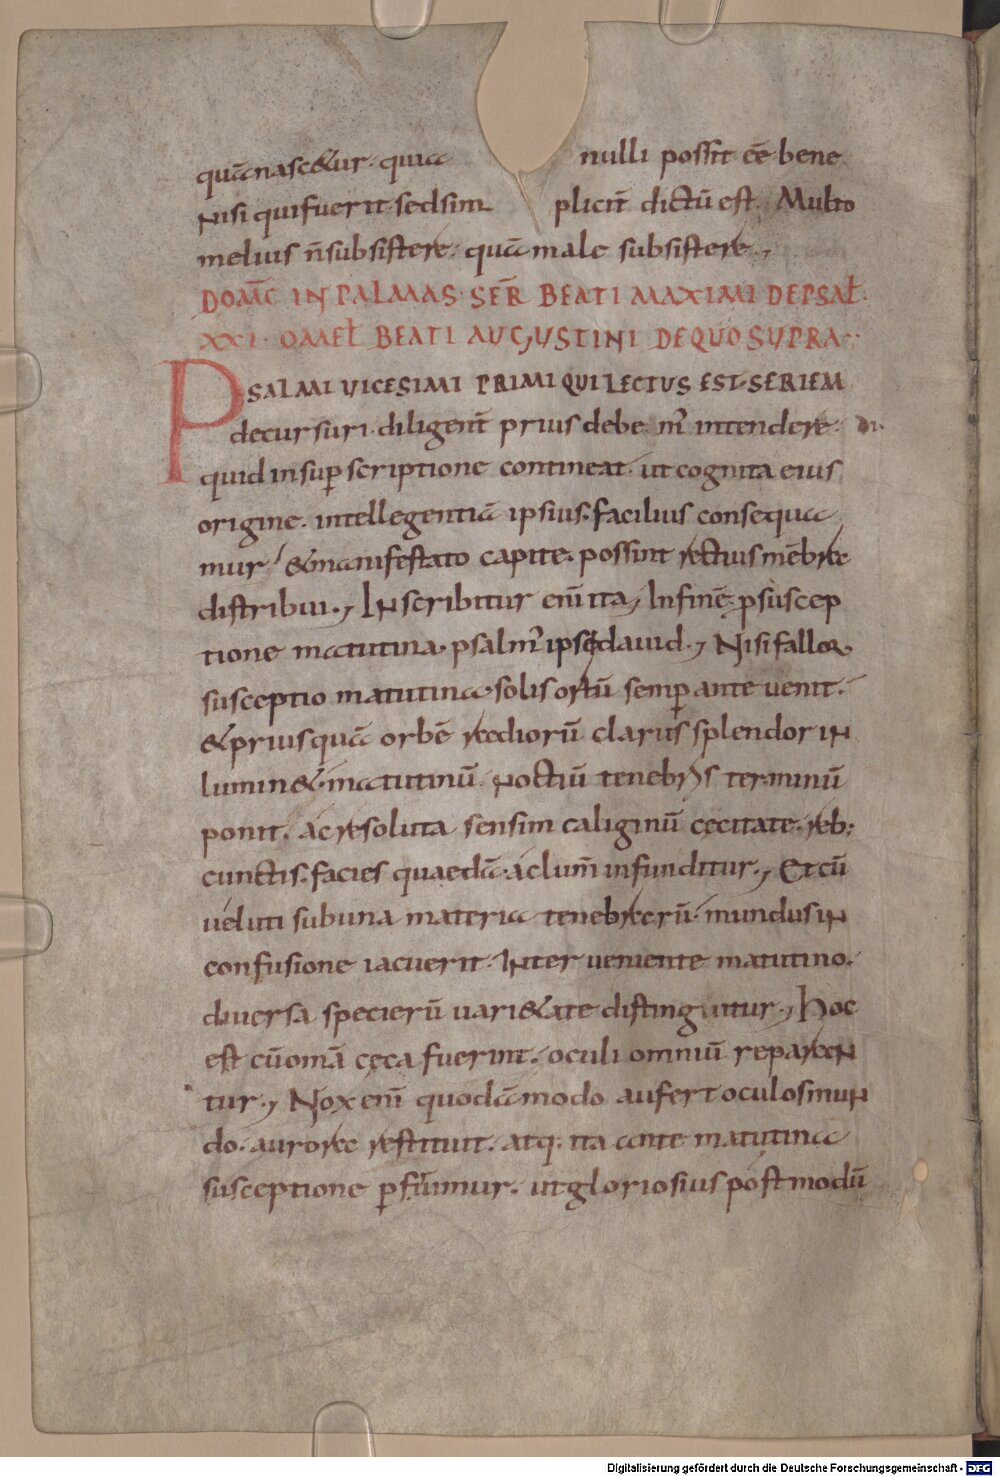 quā nasc&ur. quia nulli possit eē bene
Nisi qui fuerit. sed sim plicit̄ dictū est. Multo
melius n̄ subsistere. quā male subsistere.,
DOM̄C IN PALMAS. SER̄ BEATI MAXIMI DE PSAL̄.
XXI. OMEL̄ BEATI AUGUSTINI DE QUO SUPRA.
PSALMI VICESIMI PRIMI QUI LECTUS EST. SERIEM
decursuri. diligent̄ prius debe m̄ intendere.
quid insup̄scriptione contineat. ut cognita eius
origine. intellegentiā ipsius. facilius consequa
mur & manifestato capite. possint rectius mēbra
distribui., INscribitur eni̅ ita, In finē, p suscep
tione matutina. psalm̄ ipse dauid., Nisi fallor.
susceptio matutina. solis ortū semp̄ ante uenit.
& prius quā orbē radiorū clarus splendor iN
lumin&. matutinū Noctiū tenebris terminū
ponit. ac resoluta sensim caliginū cęcitate. reb;
cunctis. facies quaedā. ac lum̄ infunditur., Et cū
ueluti sub una materia tenebrarū mundus iN
confusione iacuerit. INter ueniente matutino.
diuersa specierū uari&ate distinguitur., Hoc
est cū om̄a cęca fuerint. oculi omniū reparaN
tur., Nox eni̅ quodā modo aufert oculos muN
do. aurora restituit. atq. ita ante matutina
susceptione p̄fruimur. ut gloriosius post modū
Digitalisierung gefördert durch die Deutsche Forschungsgemeinschaft - DFG